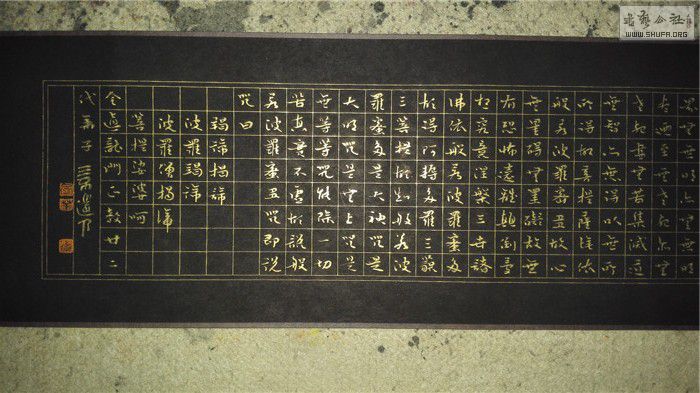 盡乃至無老死亦無
老死盡無苦集滅道
無智亦無得以無所
所得故菩提薩埵依
般若波羅蜜多故心
無罣礙無罣礙故無
有恐怖遠離顛倒夢
想究竟涅槃三世諸
佛依般若波羅蜜多
故得阿耨多羅三藐
三菩提故知般若波
羅蜜多是大神咒是
大明咒是無上咒是
無等等咒能除一切
苦真實不虛故說般
若波羅蜜多咒即說
咒曰
揭諦揭諦
波羅揭諦
波羅僧揭諦
菩提娑婆呵
全真龍門正教廿二
代弟子
WWW.SHUFA.ORG